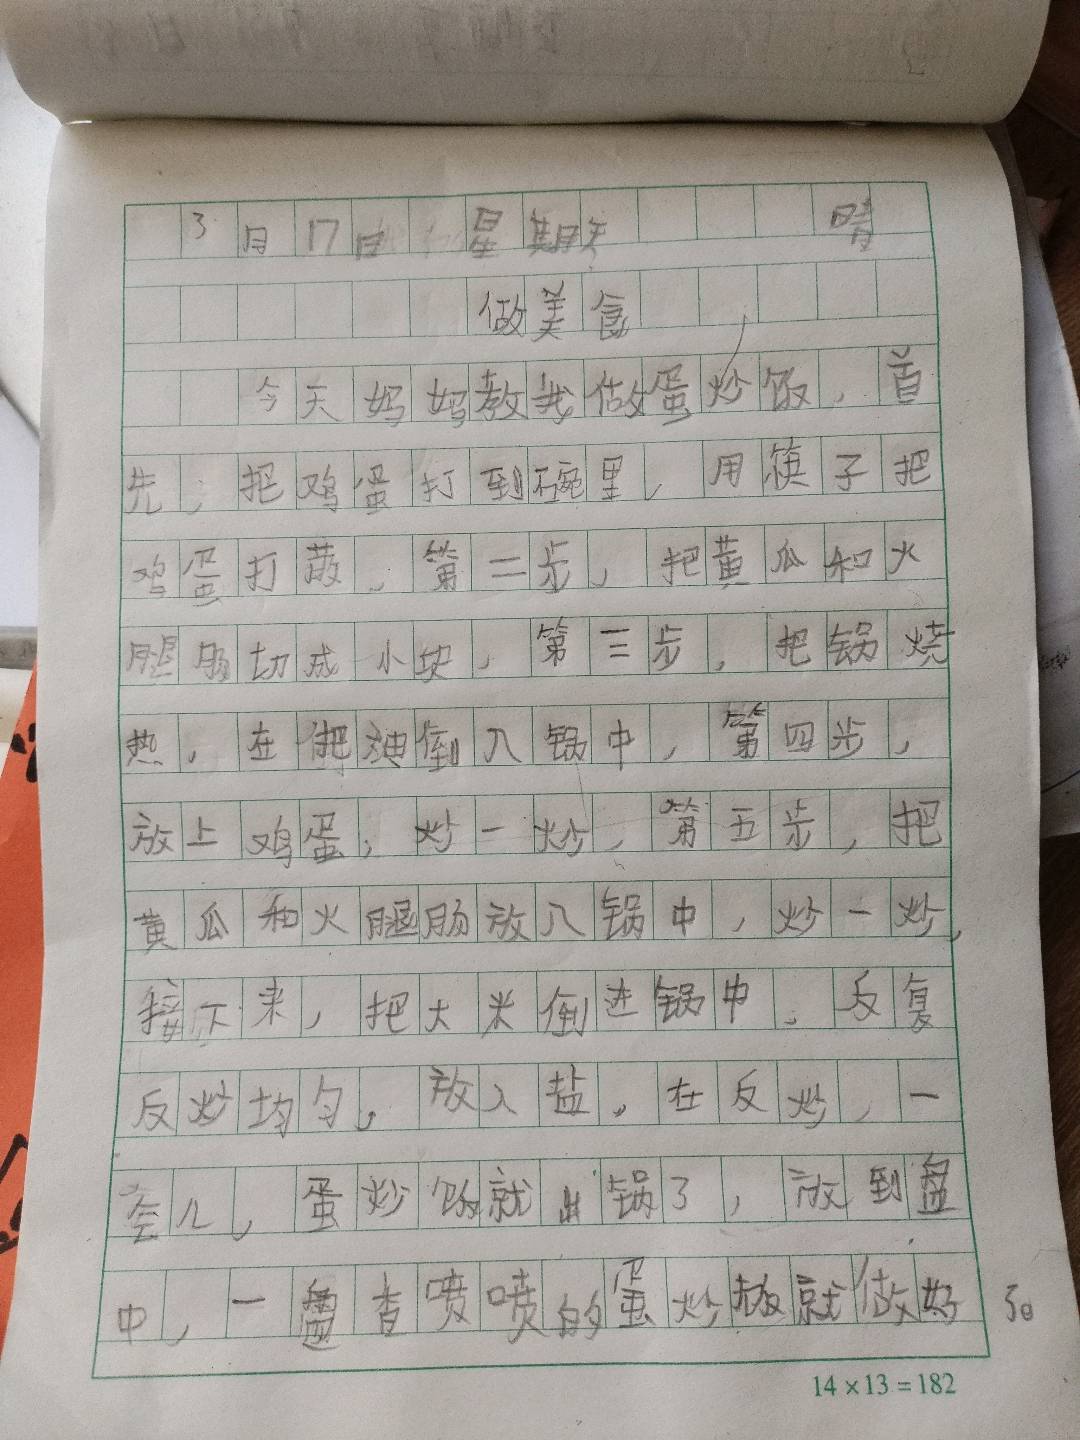 3月17日 星期天 晴
做美食
今天妈妈教我做蛋炒饭,首
先,把鸡蛋打到碗里,用筷子把
鸡蛋打散,第二步,把黄瓜和火
腿肠切成小块,第三步,把锅烧
热,在把油倒入锅中,第四步,
放上鸡蛋,炒一炒,第五步,把
黄瓜和火腿肠放入锅中,炒一炒,
接下来,把大米倒进锅中,反复
反炒均匀,放入盐,在反炒,一
会儿,蛋炒饭就出锅了,放到盘
中,一盘香喷喷的蛋炒饭就做好了。
14×13=182